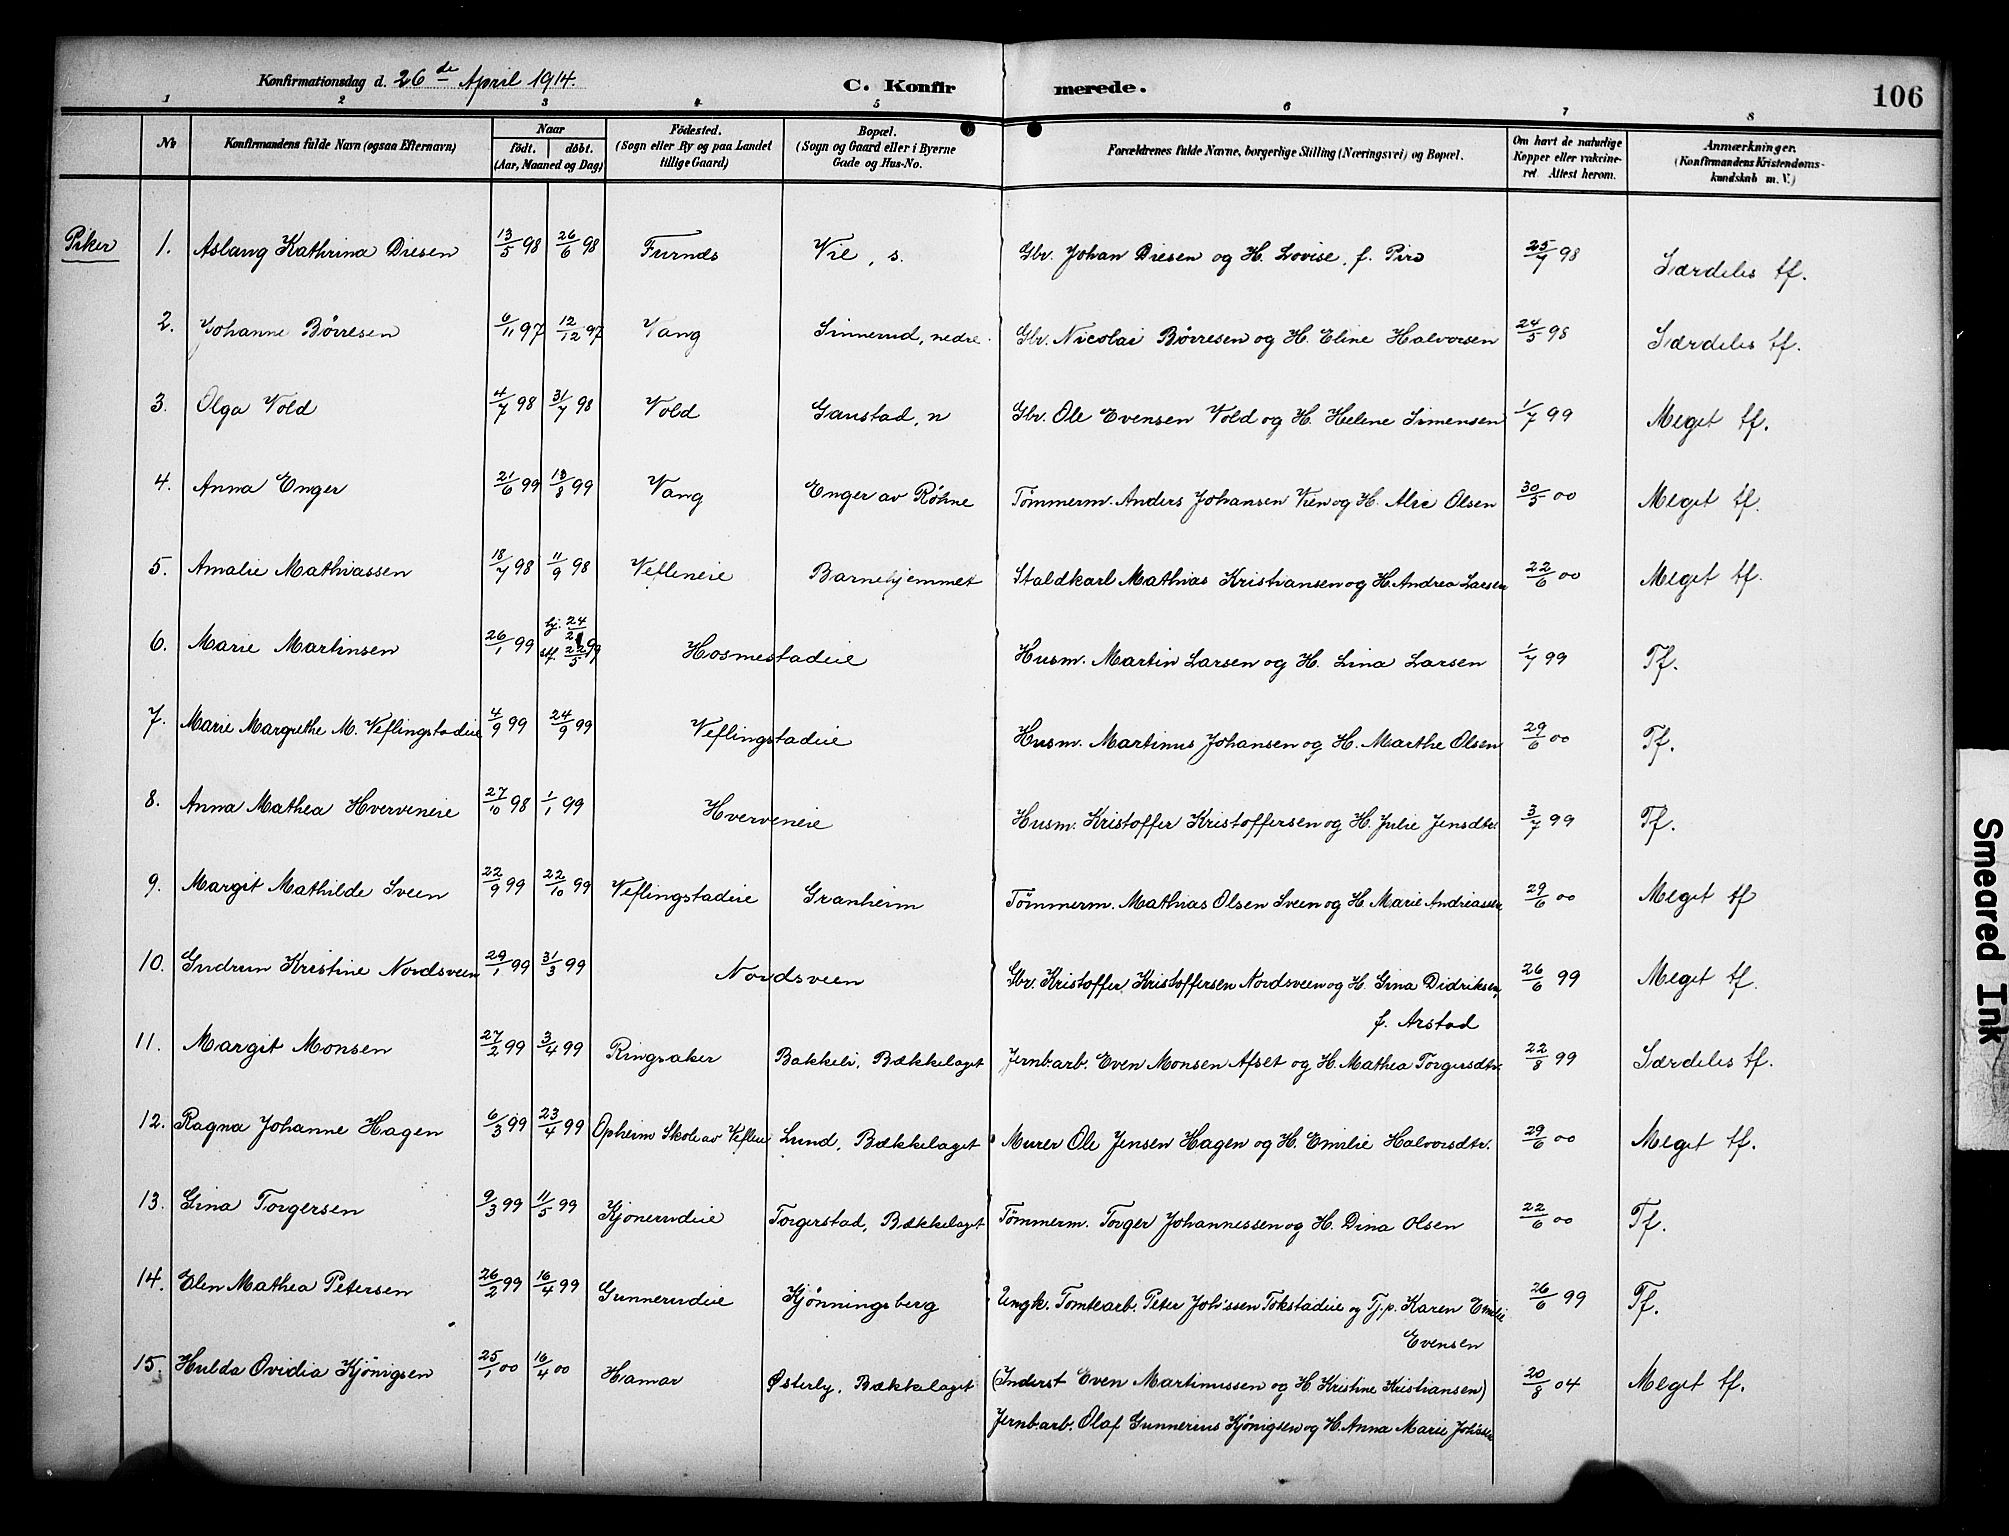 Konfirmationsdag d. 26de April 1914. C. Konfirmerede. 106
1 2 3 4 5 6 7 8
No Konfirmandens fulde Navn (ogsaa Efternavn) Naar født. døbt. (Aar, Maaned og Dag) Födested. (Sogn eller By og paa Landet tillige Gaard) Bopæl. (Sogn og Gaard eller i Byerne Gade og Hus-No. Forældrenes fulde Navne, borgerlige Stilling (Næringsvei) og Bopæl. Om havt de naturlige Kopper eller vakcineret Attest herom. Anmærkninger. (Konfirmandens Kristendomskundskab m. V.)
Piker 1. Aslaug Kathrina Diesen 13/5 98 26/6 98 Furnds Vie, s. Gbr. Johan Diesen og H. Lovise, f. Piro 25/7 98 Særdeles tf.
2. Johanne Børresen 6/11 97 12/12 97 Vang Sinnerud, nedre Gbr. Nicolai Børresen og H. Eline Halvorsen 24/5 98 Særdeles tf.
3. Olga Vold 4/7 98 31/7 98 Vold Gaustad, n Gbr. Ole Evensen Vold og H. Helene Simensen 1/7 99 Meget tf.
4. Anna Enger 21/6 99 13/8 99 Vang Enger av Røhne Tømmerm. Anders Johansen Vien og H. Alie Olsen 30/5 00 Meget tf.
5. Amalie Mathiassen 18/7 98 11/9 98 Vefleneie Barnehjemmet Staldkarl Mathias Kristiansen og H. Andrea Larsen 22/6 00 Meget tf.
6. Marie Martinsen 26/1 99 hj. 24/2 stf. 22/5 99 Hosmestadeie Husm. Martin Larsen og H. Lina Larsen 1/7 99 Tf.
7. Marie Margrethe M. Veflingstadeie 4/9 99 24/9 99 Veflingstadeie Husm. Martinus Johansen og H. Marthe Olsen 29/6 00 Tf.
8. Anna Mathea Hverveneie 27/10 98 1/1 99 Hverveneie Husm. Kristoffer Kristoffersen og H. Julie Jensdtr. 3/7 99 Tf.
9. Margit Mathilde Sveen 22/9 99 22/10 99 Veflingstadeie Granheim Tømmerm. Mathias Olsen Sveen og H. Marie Andreassen 29/6 00 Meget tf
10. Gudrun Kristine Nordsveen 29/1 99 31/3 99 Nordsveen Gbr. Kristoffer Kristoffersen Nordsveen og H. Gina Didriksen,
f. Arstad 26/6 99 Meget tf.
11. Margit Monsen 27/2 99 3/4 99 Ringsaker Bakkeli, Bækkelaget Jernb.arb. Even Monsen Afset og H. Mathea Torgersdtr. 22/8 99 Særdeles tf.
12. Ragna Johanne Hagen 6/3 99 23/4 99 Opheim Skole av Veflen Lund, Bækkelaget Murer Ole Jensen Hagen og H. Emilie Halvorsdtr. 29/6 00 Meget tf.
13. Gina Torgersen 9/3 99 11/5 99 Kjonerudeie Torgerstad, Bækkelaget Tømmerm. Torger Johannessen og H. Dina Olsen 22/6 00 Tf.
14. Elen Mathea Petersen 26/2 99 16/4 99 Gunnerudeie Kjønningsberg Ungk. Tomtearb. Peter Joh:ssen Tokstadeie og Tj.p. Karen Emilie
Evensen 26/6 99 Tf.
15. Hulda Ovidia Kjönigsen 25/1 00 16/4 00 Hamar Østerby, Bækkelaget (Inderst Even Martinussen og H. Kristine Kristiansen) 20/8 04 Meget tf.
Jernb.arb. Olaf Gunnerius Kjönigsen og H. Anna Marie Joh:ssen
Smeared Ink